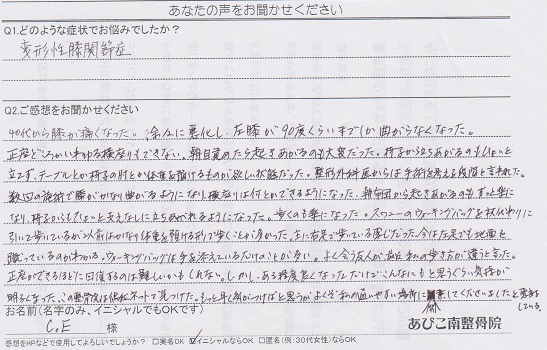 あなたの声をお聞かせください
Q1.どのような症状でお悩みでしたか？
変形性膝関節症
Q2.ご感想をお聞かせください
40代から膝が痛くなった。徐々に悪化し、左膝が90度くらいまでしか曲がらなくなった。
正座どころかいわゆる横座りもできない。朝目覚めたら起きあがるのも大変だった。椅子から立ちあがるのもひょいと
立てず、テーブルとか椅子の肘とか体重を預けるものが欲しい状態だった。整形外科医からは手術を考える段階と言われた。
数回の施術で膝がかなり曲がるようになり、横座りは何とかできるようになった。朝布団から起きあがるのもずっと楽に
なり、椅子からもひょいと支えなしに立ちあがれるようになった。歩くのも楽になった。スワニーのウォーキングバッグを杖代わりに
引いて歩いているが以前はかなり体重を預ける形で歩くことが多かった。主に右足で歩いている感じだった。今は左足でも地面を
蹴っているのがわかる。ウォーキングバッグは手を添えているだけのことが多い。よく会う友人が最近私の歩き方が違うと言った。
正座ができるほどに回復するのは難しいかもしれない。しかし、ある程度良くなっただけでこんなにもと思うくらい気持が
明るくなった。この整骨院は偶然ネットで見つけた。もっと早く気がつけばと思うがよくぞ私の通いやすい場所に開業してくださいましたと感謝
している。
お名前（名字のみ、イニシャルでもOKです）
C,E 様
あびこ南整骨院
公式HPなどで使用してよろしいでしょうか？ □実名OK ☑イニシャルならOK □匿名（例：30代女性）ならOK